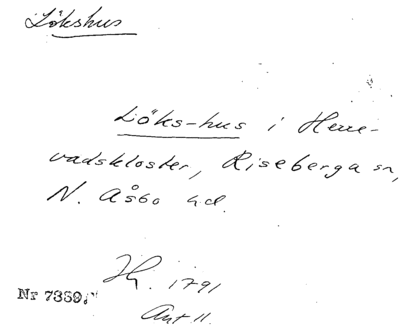 Lökshus
Löks-hus i Herre-
vadskloster, Riseberga sn,
N. Åsbo hd.
Hg. 1791
Nr 7359.
Ant 11.